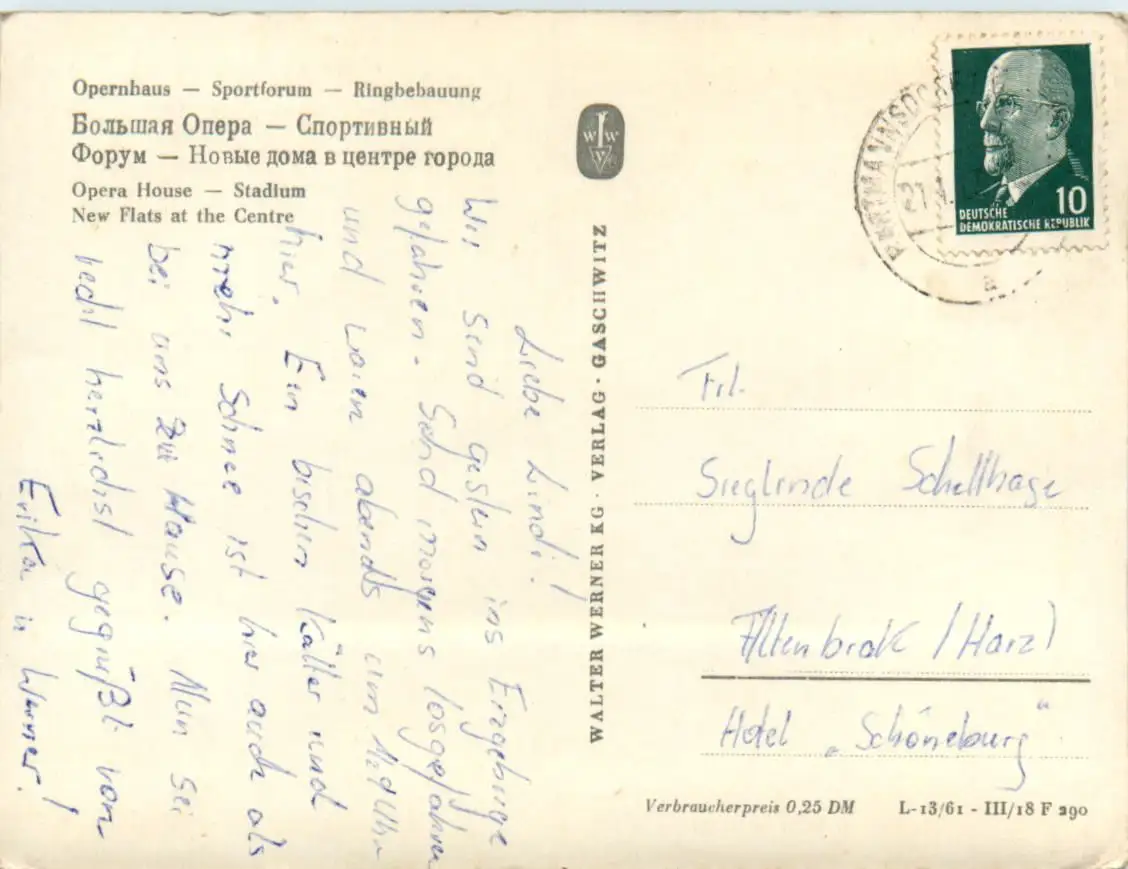 Opernhaus — Sportforum — Ringbebauung
Большая Опера — Спортивный
Форум — Новые дома в центре города
Opera House — Stadium
New Flats at the Centre
Liebe Lindi!
Wir sind gestern ins Erzgebirge
gefahren. Sind morgens losgefahren
und waren abends um Uhr
hier. Ein bischen kälter und
mehr Schnee ist hier auch als
bei uns zu Hause. Nun sei
recht herzlichst gegrüßt von
Erika u Werner!
WALTER WERNER KG · VERLAG · GASCHWITZ
W W V
DEUTSCHE
DEMOKRATISCHE REPUBLIK
10
Frl.
Sieglinde Schellhage
Altenbrak / Harz
Hotel „Schöneburg"
Verbraucherpreis 0,25 DM L-13/61 - III/18 F 290